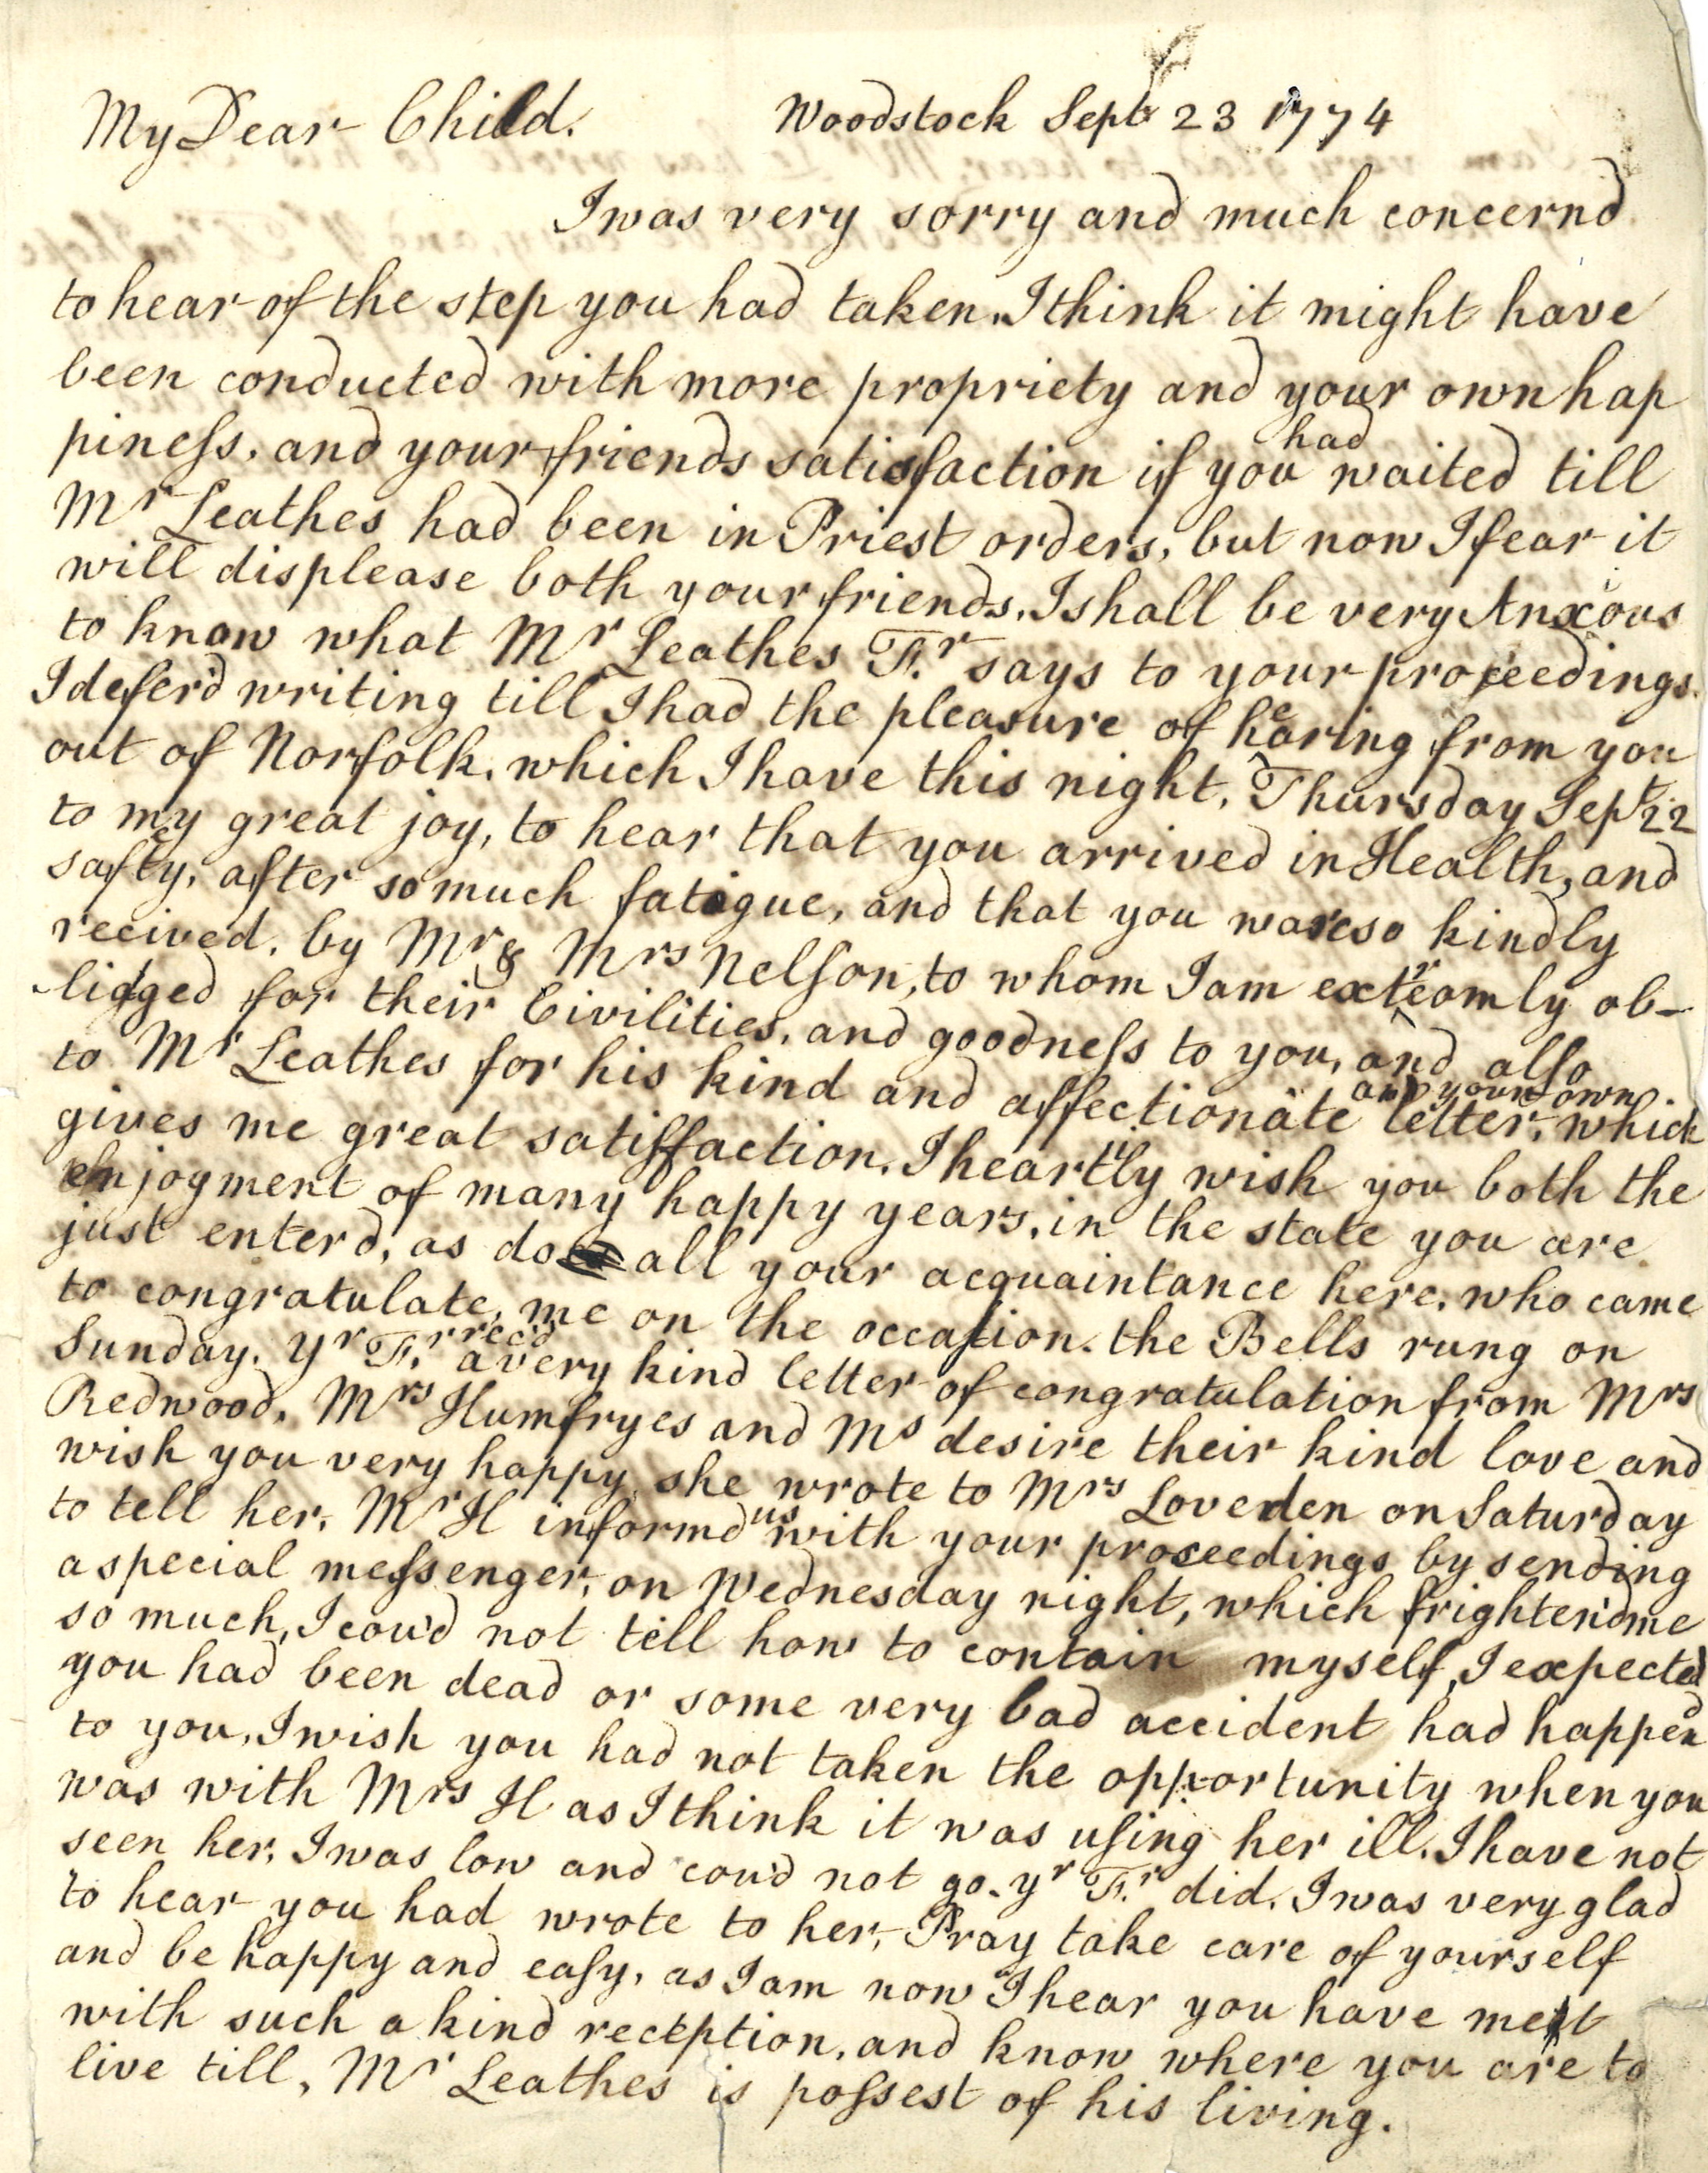 My Dear Child. Woodstock Sept 23 1774
I was very sorry and much concernd
to hear of the step you had taken. I think it might have
been conducted with more propriety and your own hap
pineſs, and your friends satisfaction if you had waited till
Mr Leathes had been in Priest orders, but now I fear it
will displease both your friends. I shall be very Anxious
to know what Mr Leathes Fr. says to your proceedings.
I defer'd writing till I had the pleasure of hearing from you
out of Norfolk. which I have this night, Thursday Sept 22
to my great joy, to hear that you arrived in Health, and
safety, after so much fatigue, and that you ware so kindly
recived, by Mr & Mrs Nelſon, to whom I am extreamly ob-
-ligged for their Civilities, and goodneſs to you, and alſo
to Mr Leathes for his kind and affectionate letter, and your own. which
gives me great satiſfaction. I heartily wish you both the
enjoyment of many happy years, in the state you are
just enterd, as do all your acquaintance here. who came
to congratulate, me on the occaſion. the Bells rung on
Sunday. Yr Fr. recd a very kind letter of congratulation from Mrs
Redwood, Mrs Humfryes and Ms desire their kind love and
wish you very happy, she wrote to Mrs Loveden on Saturday
to tell her, Mr H informd us with your proceedings by sending
a special meſsenger, on Wednesday night, which frighten'd me
so much, I cou'd not tell how to contain myself, I expected
you had been dead or some very bad accident had happend
to you, I wish you had not taken the opportunity when you
was with Mrs H as I think it was uſing her ill. I have not
seen her, I was low and cou'd not go. yr Fr. did. I was very glad
to hear you had wrote to her, Pray take care of yourself
and be happy and eaſy, as I am now I hear you have met
with such a kind reception, and know where you are to
live till, Mr Leathes is poſsest of his living.